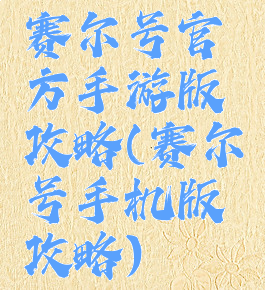 赛尔号官
方手游版
攻略(赛尔
号手机版
攻略)